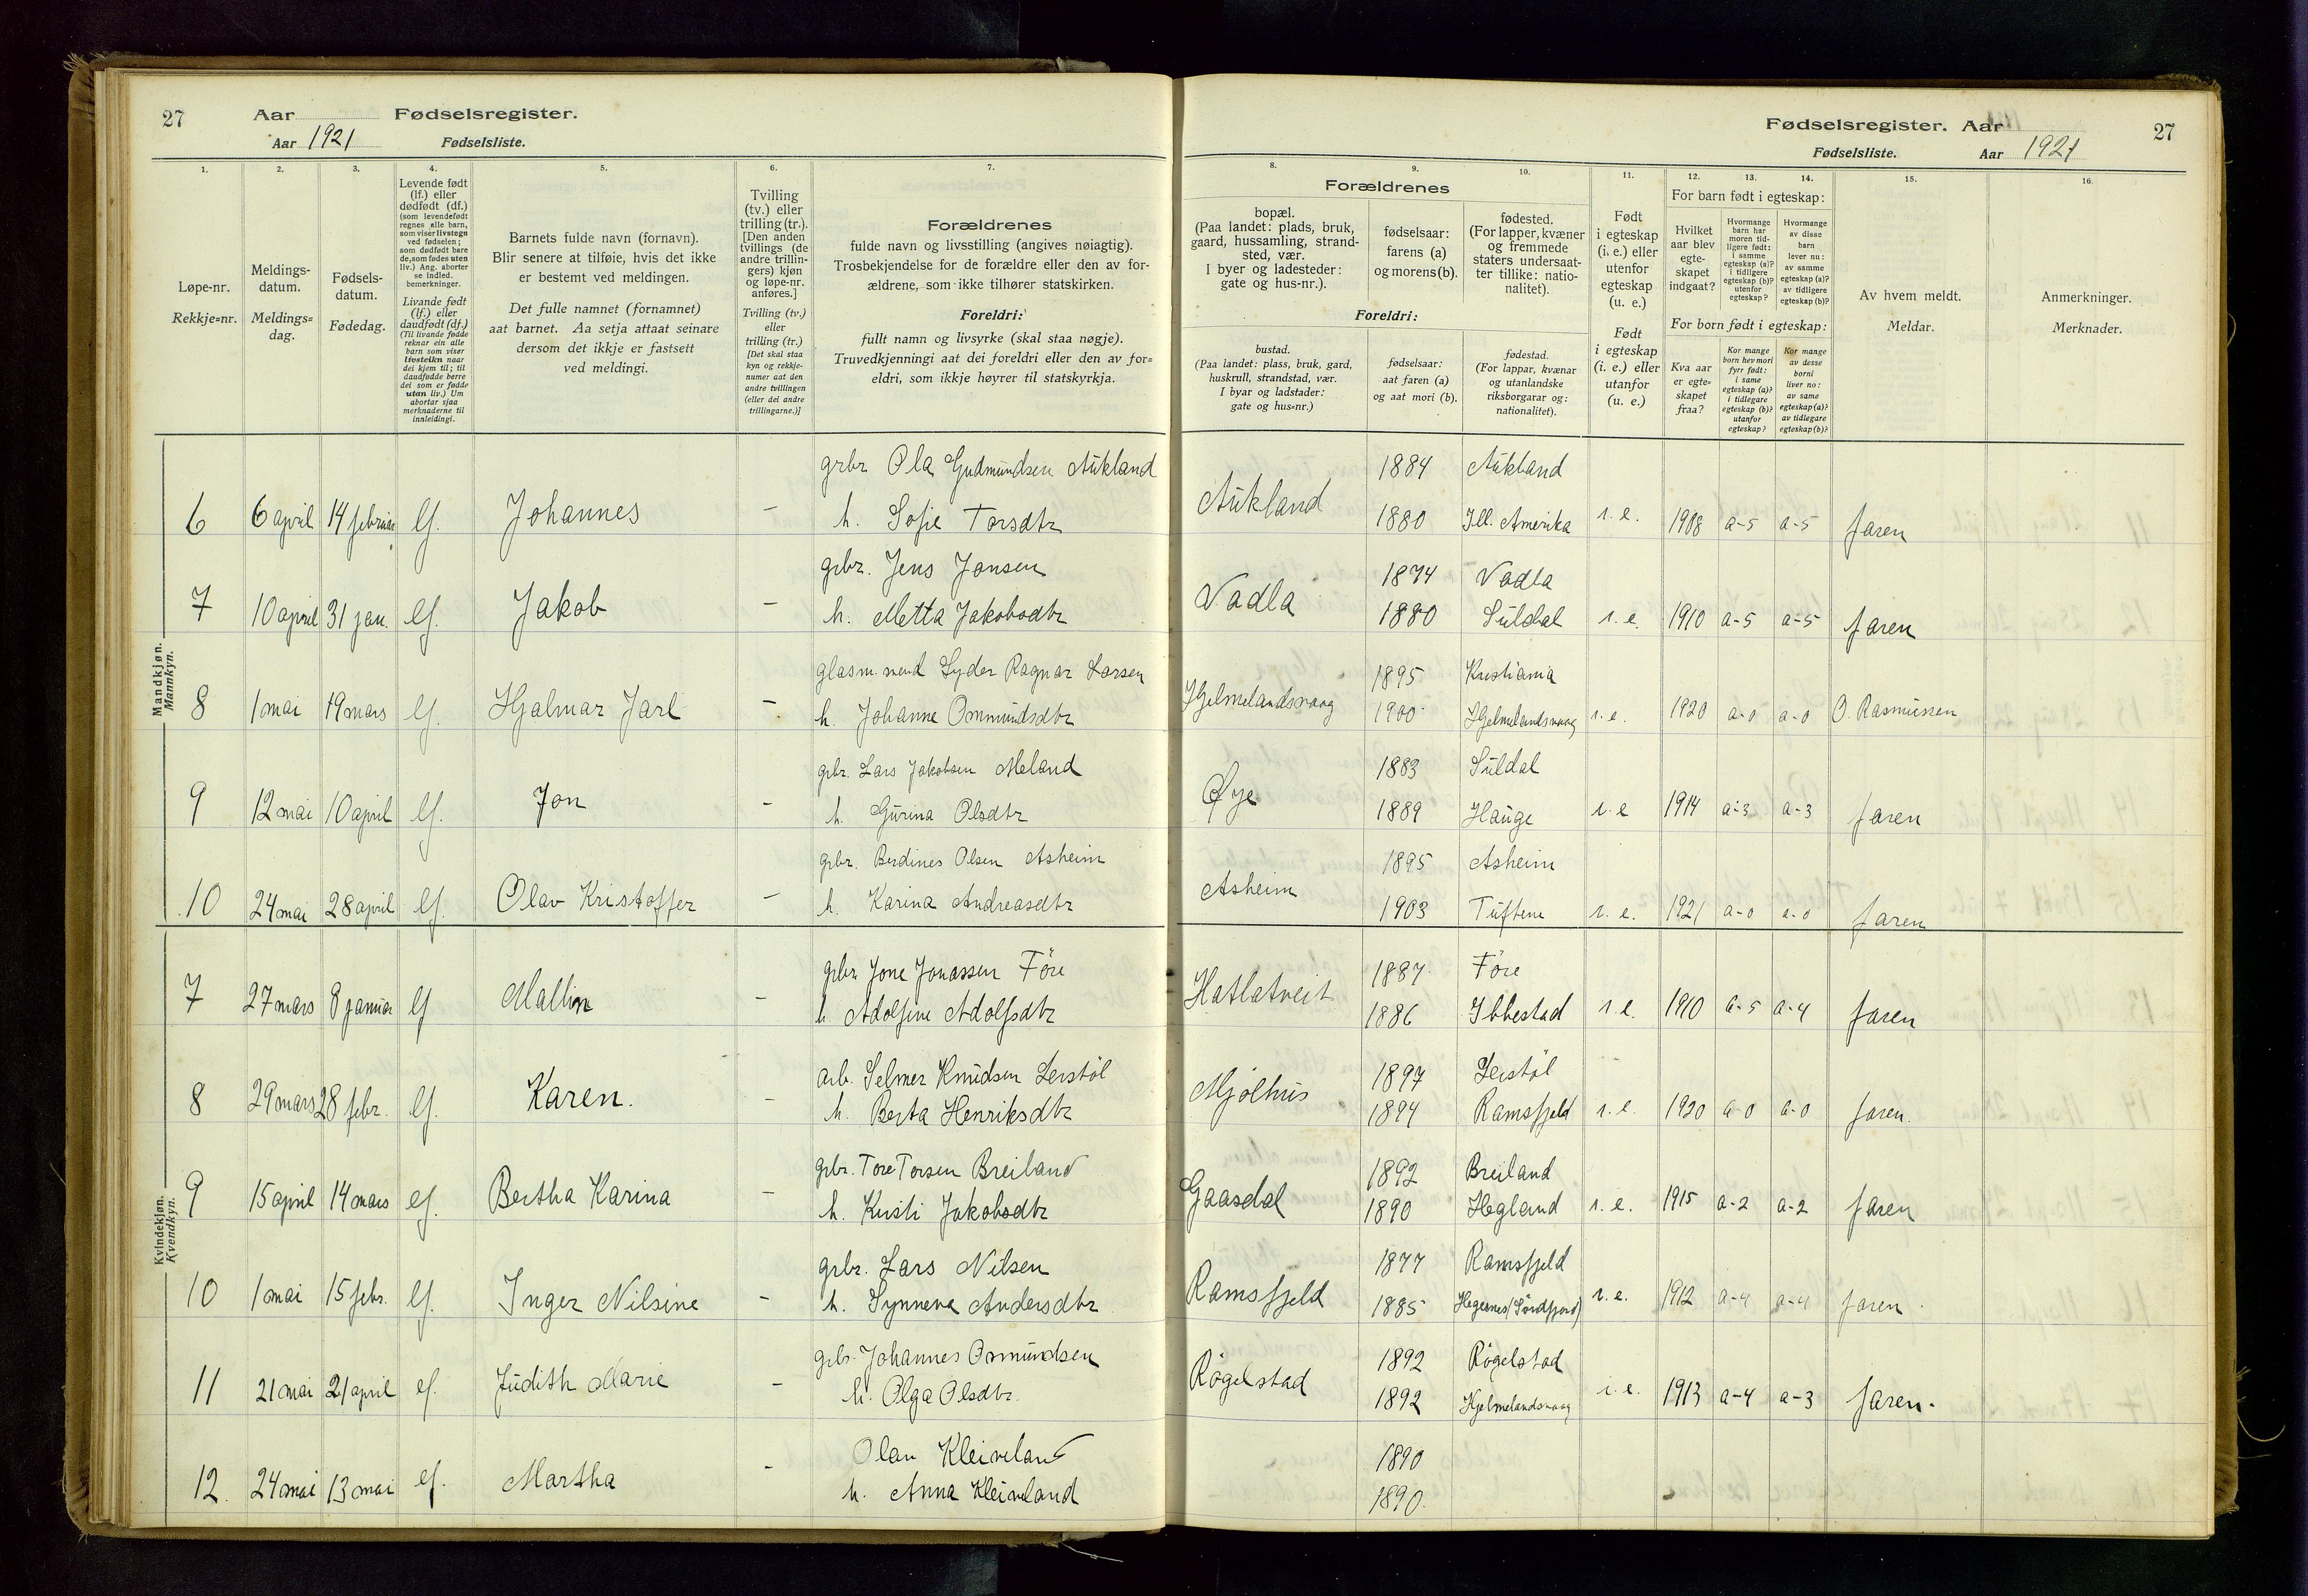 27 Aar Fødselsregister.
Aar 1921 Fødselsliste.
1. 2. 3. 4. 5. 6. 7.
Løpe-nr.
Rekkje=nr.
Meldings-
datum.
Meldings=
dag.
Fødsels-
datum.
Fødedag.
Levende født
(lf.) eller
dødfødt (df.)
(som levendefødt
regnes alle barn,
som viser livstegn
ved fødselen;
som dødfødt bare
de, som fødes uten
liv.) Ang. aborter
se indled.
bemerkninger.
Livande født
(lf.) eller
daudfødt (df.)
(Til livande fødde
reknar ein alle
barn som viser
livsteikn naar
dei kjem til; til
daudfødde berre
dei som er fødde
utan liv.) Um
abortar sjaa
merknaderne til
innleidingi.
Barnets fulde navn (fornavn).
Blir senere at tilføie, hvis det ikke
er bestemt ved meldingen.
Det fulle namnet (fornamnet)
aat barnet. Aa setja attaat seinare
dersom det ikkje er fastsett
ved meldingi.
Tvilling
(tv.) eller
trilling (tr.).
[Den anden
tvillings (de
andre trillin-
gers) kjøn
og løpe-nr.
anføres.]
Tvilling (tv.)
eller
trilling (tr.)
[Det skal staa
kyn og rekkje-
numer aat den
andre tvillingen
(eller dei andre
trillingarne.)]
Forældrenes
fulde navn og livsstilling (angives nøiagtig).
Trosbekjendelse for de forældre eller den av for-
ældrene, som ikke tilhører statskirken.
Foreldri:
fullt namn og livsyrke (skal staa nøgje).
Truvedkjenningi aat dei foreldri eller den av for=
eldri, som ikkje høyrer til statskyrkja.
Mandkjøn.
Mannkyn.
grbr Ola Gudmundsen Aukland
6 6 april 14 februar lf. Johannes - h. Sofie Torsdtr
grbr. Jens Jonsen
7 10 april 31 jan. lf. Jakob - h. Metta Jakobsdtr
glasm.svend Lyder Ragnar Larsen
8 1 mai 19 mars lf. Hjalmar Jarl - h. Johanne Ommundsdtr
grbr. Lars Jakobsen Meland
9 12 mai 10 april lf. Jon - h. Gurina Olsdtr
grbr. Berdines Olsen Asheim
10 24 mai 28 april lf. Olav Kristoffer - h. Karina Andreasdtr
Kvindekjøn.
Kvendkyn.
grbr Jone Jonassen Före
7 27 mars 8 januar lf Mallin - h Adolfine Adolfsdtr
arb. Selmer Knudsen Lerstöl
8 29 mars 28 febr. lf. Karen. - h. Berta Henriksdtr
grbr. Tore Torsen Breiland
9 15 april 14 mars lf. Bertha Karina - h. Kristi Jakobsdtr
grbr. Lars Nilsen
10 1 mai 15 febr. lf. Inger Nilsine - h. Synneva Andersdtr
grbr. Johannes Osmundsen
11 21 mai 21 april lf. Judith Marie - h. Olga Olsdtr.
Olav Kleiveland
12. 24 mai 13 mai lf. Martha - h. Anna Kleiveland
Fødselsregister. Aar 27
Fødselsliste. Aar 1921
8. 9. 10. 11. 12. 13. 14. 15. 16.
Forældrenes
bopæl.
(Paa landet: plads, bruk,
gaard, hussamling, strand-
sted, vær.
I byer og ladesteder:
gate og hus-nr.).
fødselsaar:
farens (a)
og morens (b).
fødested.
(For lapper, kvæner
og fremmede
staters undersaat-
ter tillike: natio-
nalitet).
Foreldri:
bustad.
(Paa landet: plass, bruk, gard,
huskrull, strandstad, vær.
I byar og ladstader:
gate og hus-nr.)
fødselsaar:
aat faren (a)
og aat mori (b).
fødestad.
(For lappar, kvænar
og utanlandske
riksborgarar og:
nationalitet).
Født
i egteskap
(i. e.) eller
utenfor
egteskap
(u. e.)
Født
i egteskap
(i. e.) eller
utanfor
(u. e.)
For barn født i egteskap:
Hvilket
aar blev
egte-
skapet
indgaat?
Hvormange
barn har
moren tid-
ligere født:
i samme
egteskap (a)?
i tidligere
egteskap (b)?
utenfor
egteskap?
Hvormange
av disse
barn
lever nu:
av samme
egteskap (a)?
av tidligere
egteskap (b)?
For born født i egteskap:
Kva aar
er egte=
skapet
fraa?
Kor mange
born hev mori
fyrr født:
i same
egteskap (a)?
i tidlegare
egteskap (b)?
utanfor
egteskap?
Kor mange
av desse
borni
liver no:
av same
egteskap (a)?
av tidlegare
egteskap (b)?
Av hvem meldt.
Meldar.
Anmerkninger.
Merknader.
1884 Aukland
Aukland 1880 Ill. Amerika i. e. 1908 a-5 a-5 faren
1874 Vadla
Vadla 1880 Suldal i. e. 1910 a-5 a-5 faren
1895 Kristiania
Hjelmelandsvaag 1900 Hjelmelandsvaag i. e. 1920 a-0 a-0 O. Rasmussen
1883 Suldal
Øye 1889 Hauge i. e 1914 a-3 a-3 faren
1895 Asheim
Asheim 1903 Tuftene i. e. 1921 a-0 a-0 faren
1887 Före
Hatlatveit 1886 Ibbestad i. e. 1910 a-5 a-4 faren
1897 Lerstöl
Mjølhus 1894 Ramsfjeld i. e. 1920 a-0 a-0 faren.
1892 Breiland
Gaasdal 1890 Hegland i. e. 1915 a-2 a-2 faren
1877 Ramsfjeld
Ramsfjeld 1885 Hegernes (Söndfjord) i. e. 1912 a-4 a-4 faren
1892 Rögelstad
Rögelstad 1892 Hjelmelandsvaag i. e. 1913 a-4 a-3 faren.
1890
1890.